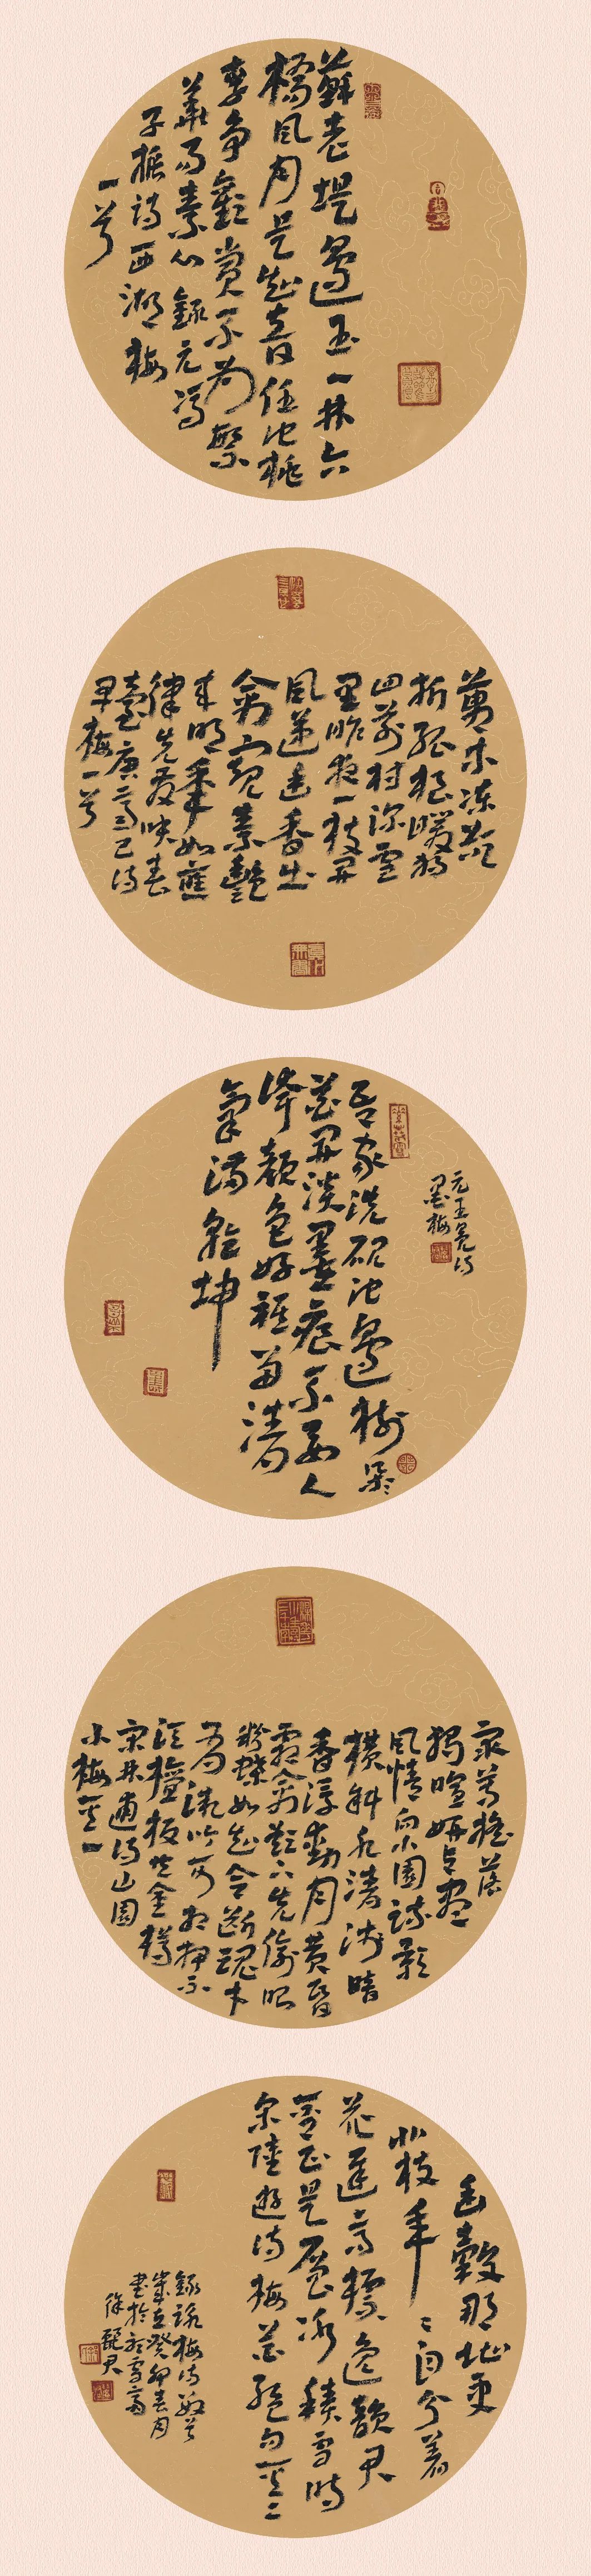 蘇老堤邊玉一林六
橋風月是知音任他桃
李爭歡賞不為繁
華易素心錄元馮
子振詩西湖梅
一首
萬木凍欲
折孤根暖獨
回前村深雪
里昨夜一枝開
風遞幽香出
禽窺素艷
來明年如應
律先發映春
臺唐齊己詩
早梅一首
元王冕詩
墨梅
吾家洗硯池邊樹朵朵
花開淡墨痕不要人
誇顏色好祇留清
氣滿乾坤
衆芳搖落
獨暄妍占盡
風情向小園疏影
橫斜水清淺暗
香浮動月黃昏
霜禽欲下先偷眼
粉蝶如知合斷魂幸
有微吟可相狎不
須檀板共金樽
宋林逋詩山園
小梅其一
幽穀那堪更
北枝年年自分着
花遲高標逸韻君
知正是層冰積雪時
宋陸遊詩梅花絕句其二
錄詠梅詩數首
歲在癸卯春月
書於雪齋
徐君